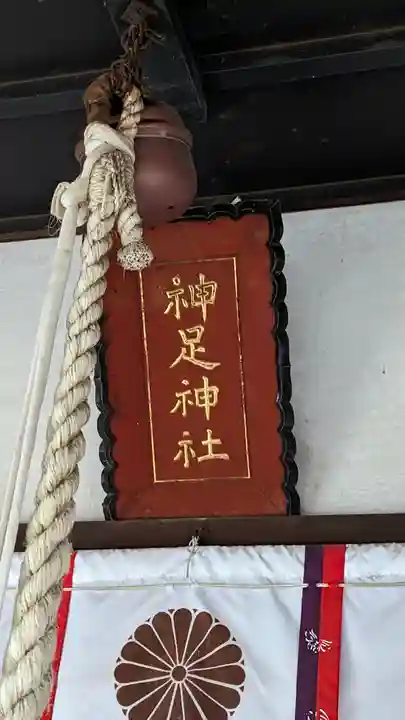 神足神社